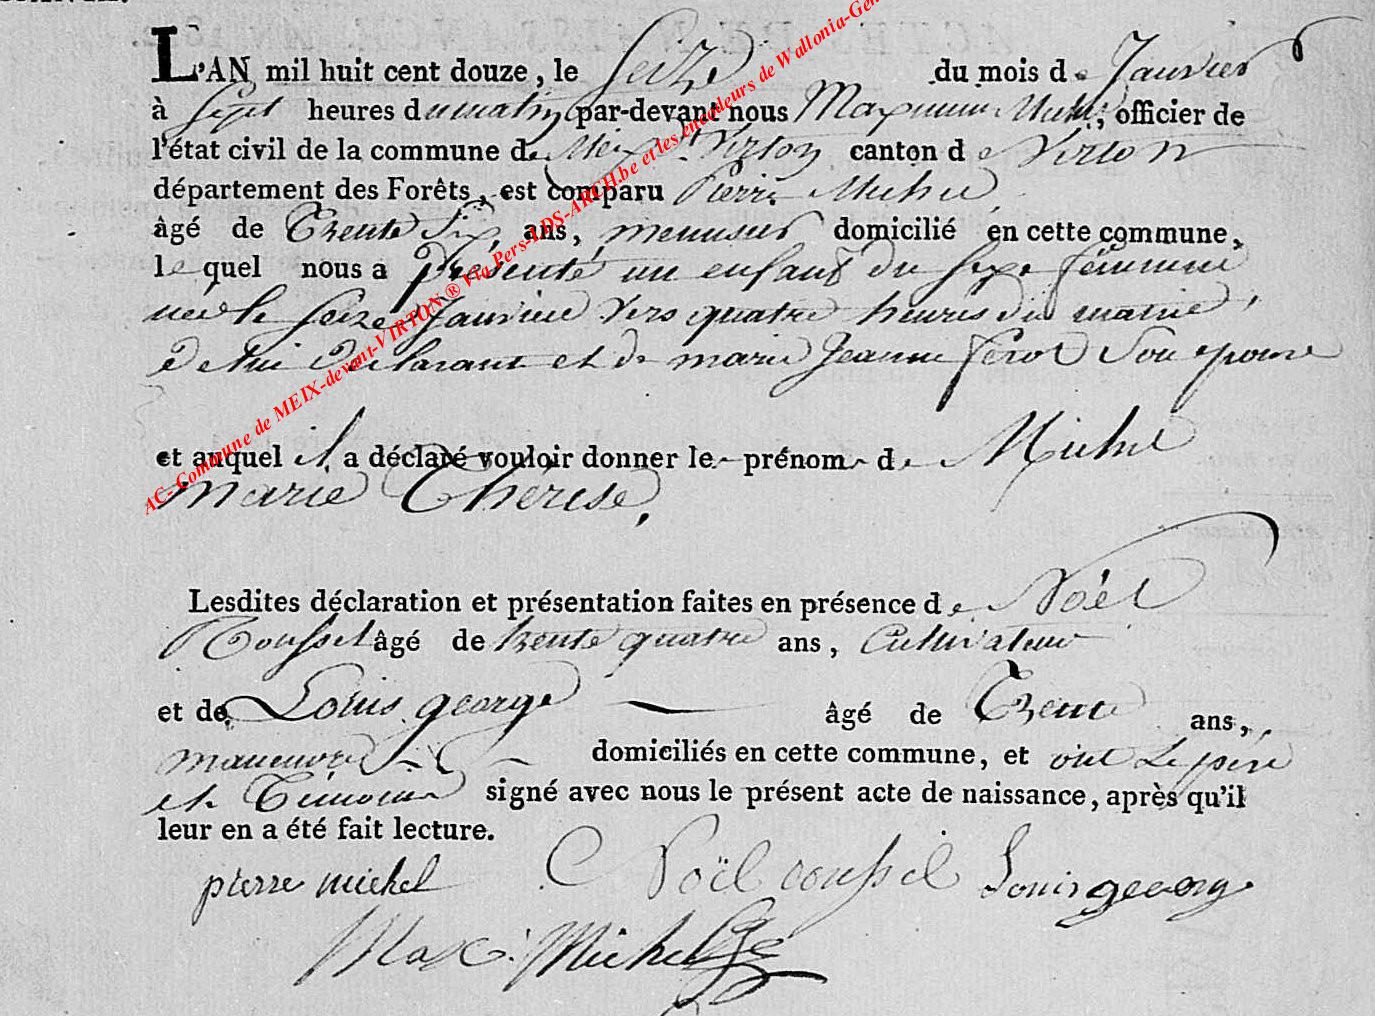 L'AN mil huit cent douze, le Seize du mois de Janvier
à Sept heures du matin par-devant nous Michel, officier de
l'état civil de la commune de Meix dt Virton canton de Virton
département des Forêts, est comparu Pierre Michel,
âgé de Trente Six ans, menusier domicilié en cette commune,
lequel nous a présenté un enfant du sexe féminin
née le seize Janvier vers quatre heures du matin,
de lui Déclarant et de marie Jeanne ferot Son epouse
et auquel il a déclaré vouloir donner les prénoms de Michel
marie Thérese,
Lesdites déclaration et présentation faites en présence de Noël
Roussel âgé de trente quatre ans, Cultivateur
et de Louis george âgé de Trente ans,
maneuvre domiciliés en cette commune, et ont Le père
et Témoins signé avec nous le présent acte de naissance, après qu'il
leur en a été fait lecture.
pierre michel Noël roussel Louis george
Max. Michel
AC-Commune de MEIX-devant-VIRTON ® Via Pers-LDS-ARCH.be et les encodeurs de Wallonia-Gen